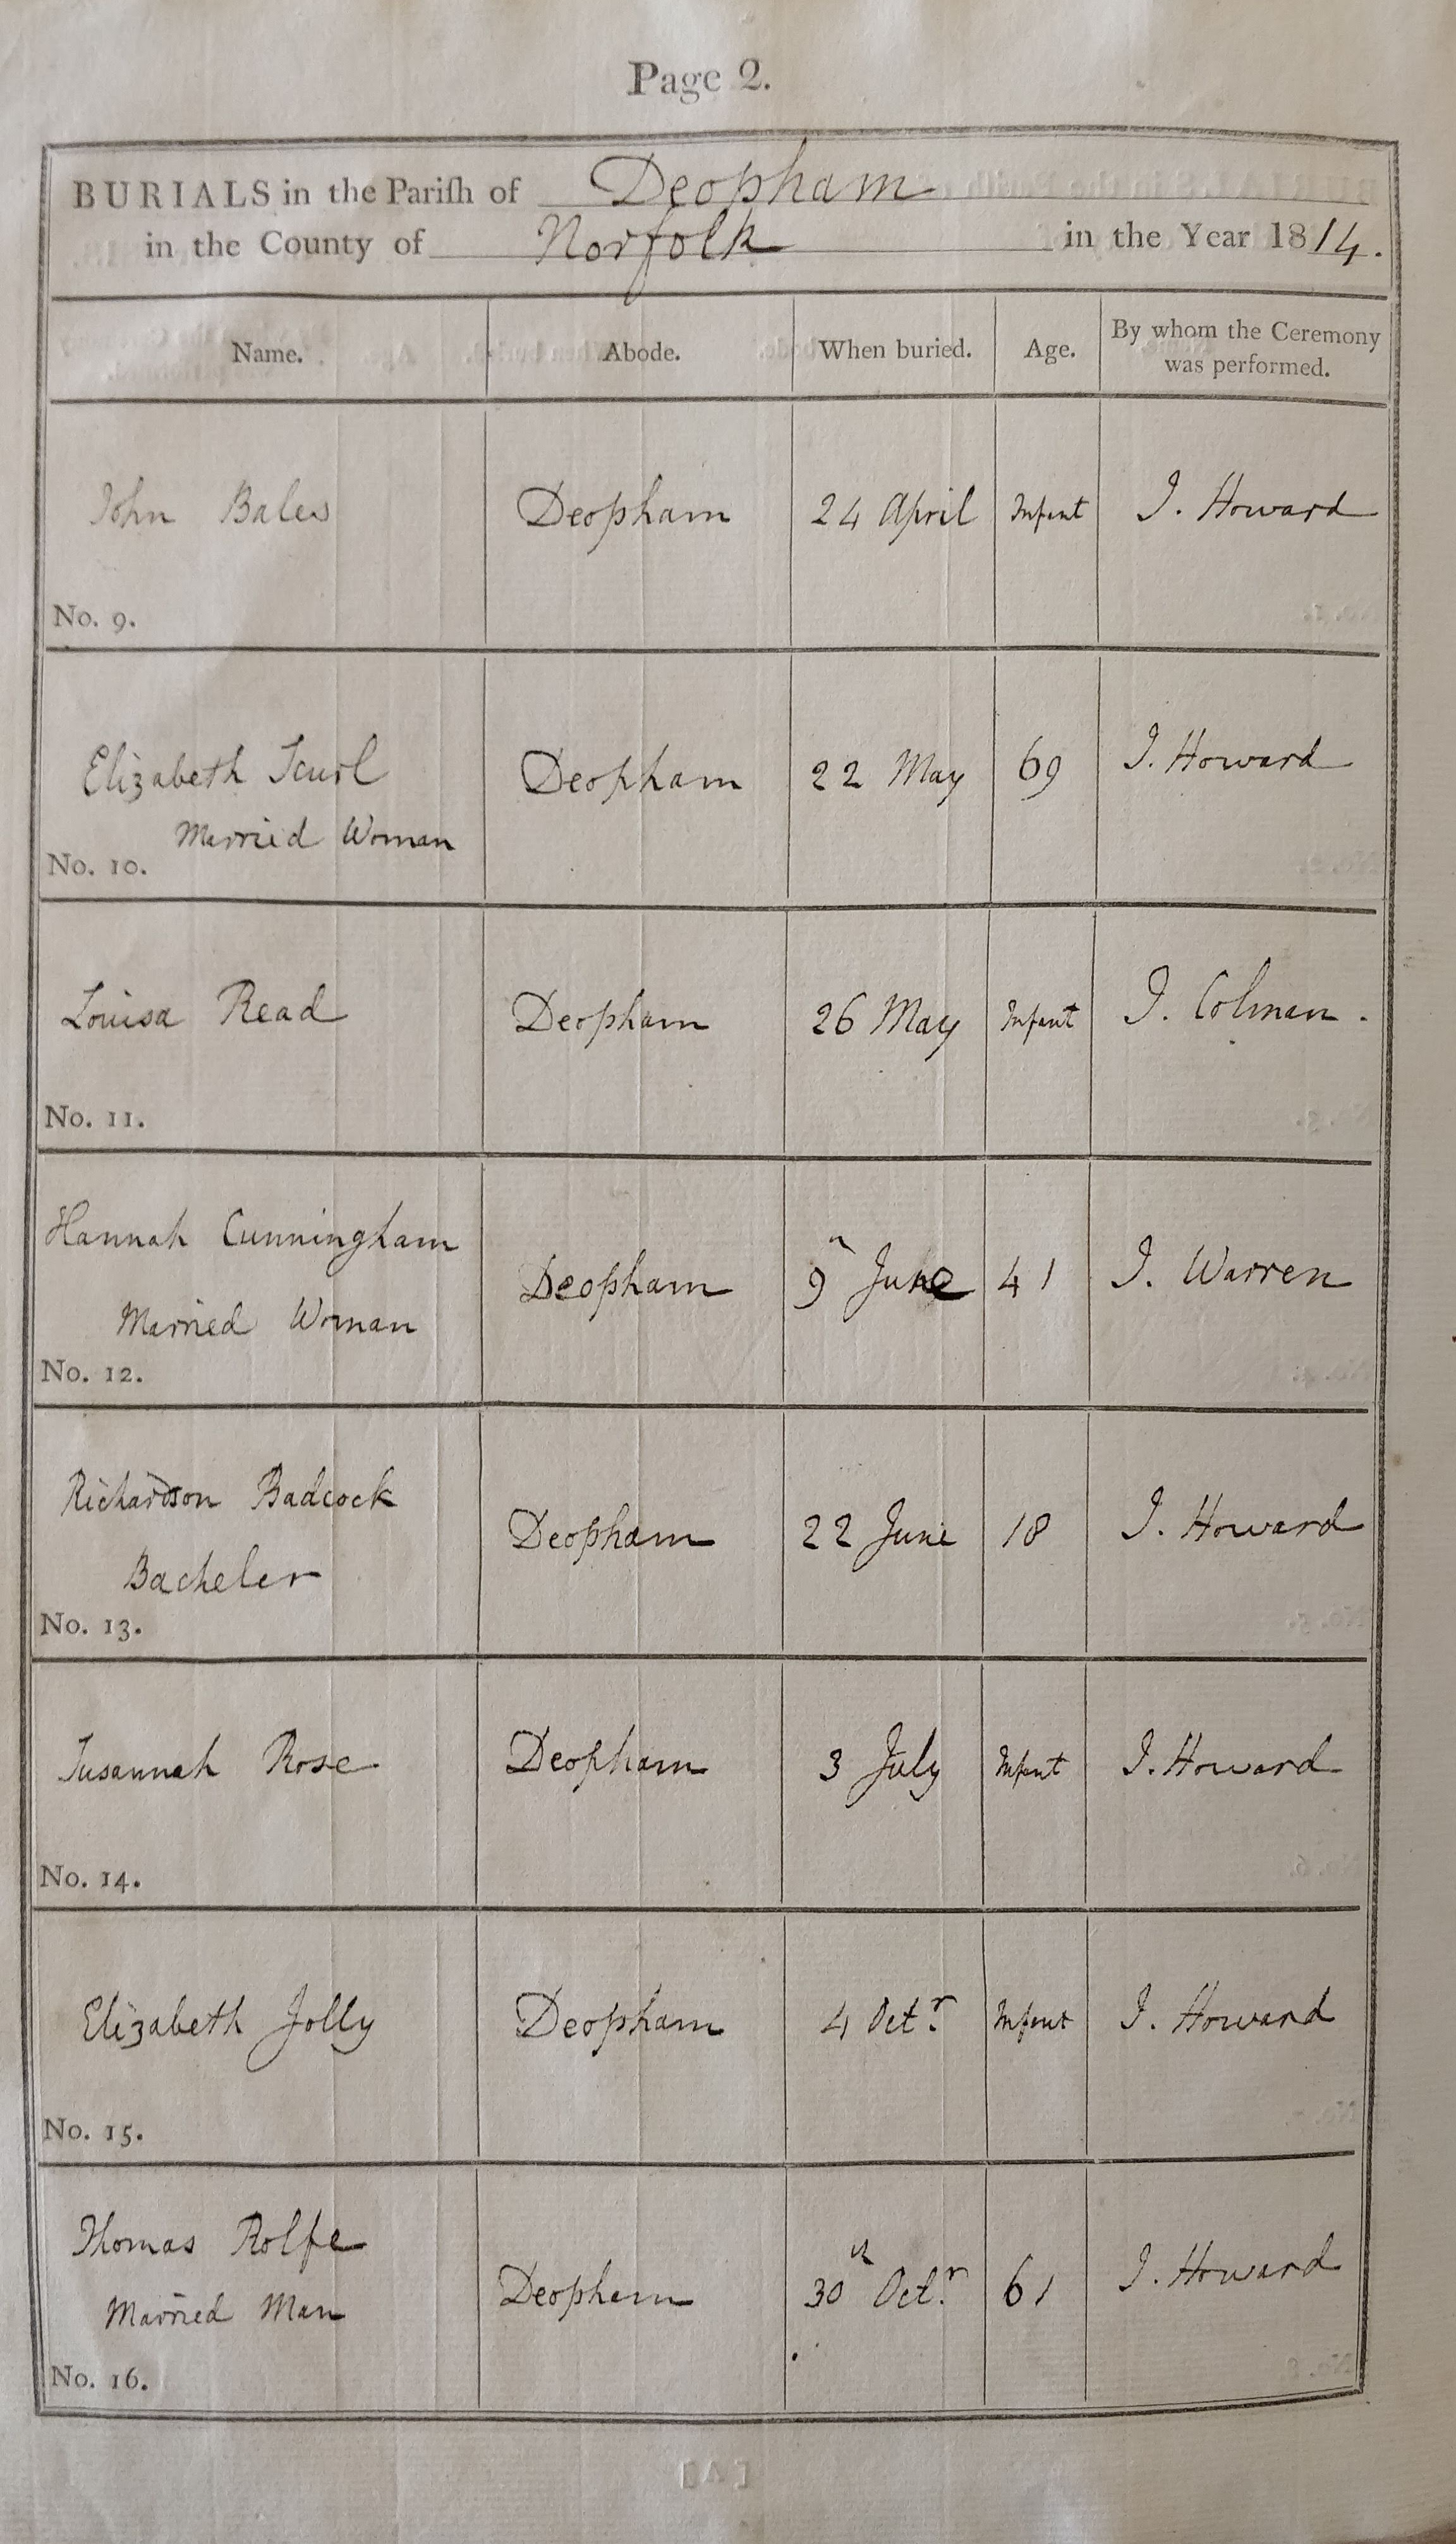 Page 2.
BURIALS in the Pariſh of Deopham
in the County of Norfolk in the Year 1814.
Name. Abode. When buried. Age. By whom the Ceremony
was performed.
John Bales Deopham 24 April Infant J. Howard
No. 9.
Elizabeth Scurl Deopham 22 May 69 J. Howard
Married Woman
No. 10.
Louisa Read Deopham 26 May Infant J. Colman.
No. 11.
Hannah Cunningham
Deopham 9 June 41 J. Warren
Married Woman
No. 12.
Richardson Badcock
Deopham 22 June 18 J. Howard
Bacheler
No. 13.
Susannah Rose Deopham 3 July Infant J. Howard
No. 14.
Elizabeth Jolly Deopham 4 Octr. Infant J. Howard
No. 15.
Thomas Rolfe
Deopham 30th Octr. 61 J. Howard
Married Man
No. 16.